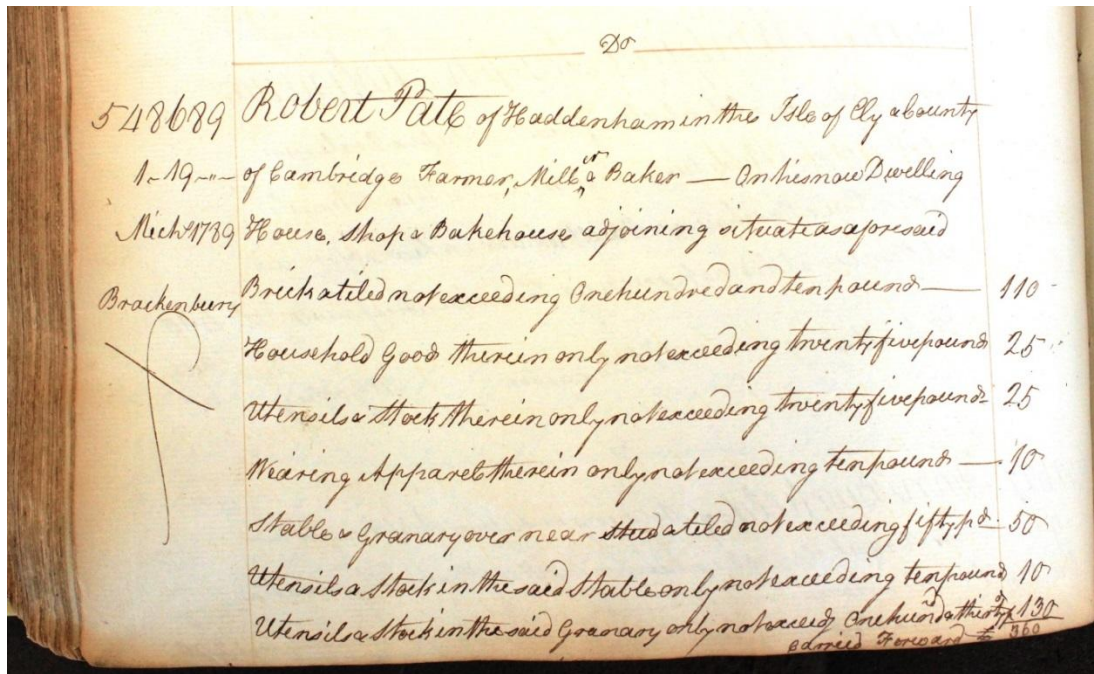 Do
548689 Robert Pate of Haddenham in the Isle of Ely & County
1-19-"- of Cambridge Farmer, Miller & Baker — On his now Dwelling
Michs 1789 House, Shop & Bakehouse adjoining situate as aforesaid
Brackenbury Brick & tiled not exceeding One hundred and ten pound — 110
Household Good therein only not exceeding twenty five pound 25
Utensils & Stock therein only not exceeding twenty five pound 25
Wearing Apparel therein only not exceeding ten pound — 10
Stable & Granary over near Stud & tiled not exceeding fifty pd. 50
Utensils & Stock in the said Stable only not exceeding ten pound 10
Utensils & Stock in the said Granary only not exceedg One hund & thirty 130
Carried Forward £ 360